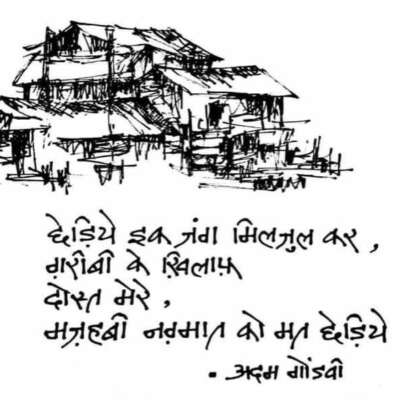 छेड़िये इक जंग मिलजुल कर,
ग़रीबी के ख़िलाफ़
दोस्त मेरे,
मज़हबी नग़मात को मत छेड़िये
- अदम गोंडवी